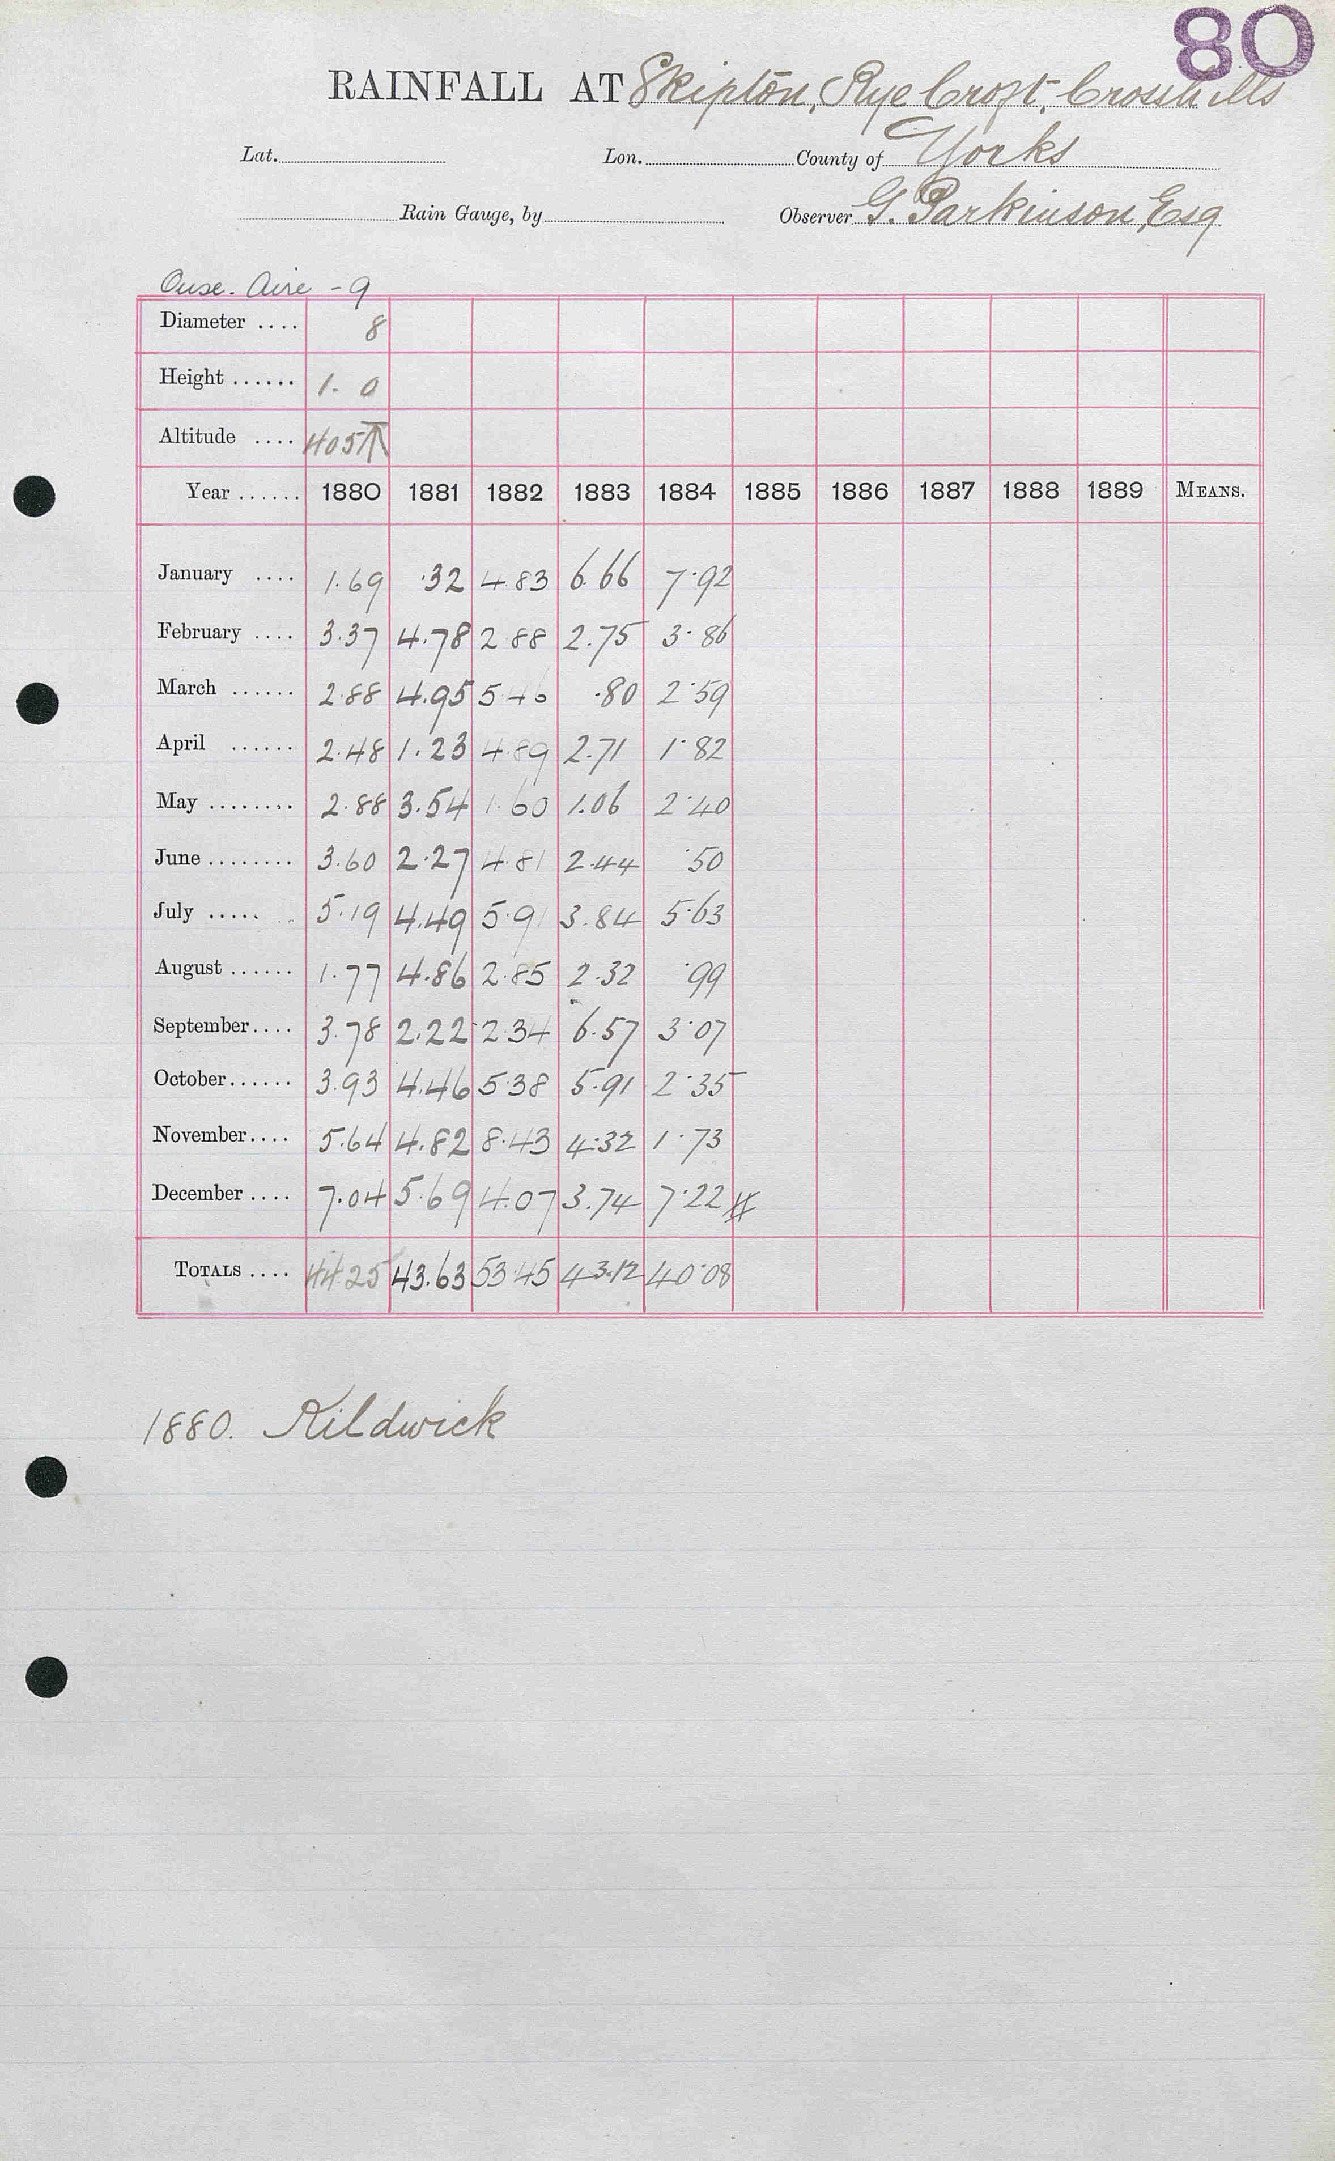 80
RAINFALL AT Skipton, Rye Croft, Crosshills
Lat. Lon. County of Yorks
Rain Gauge, by Observer G. Parkinson, Esq
Ouse. Aire - 9
Diameter .... 8
Height ...... 1. 0
Altitude .... 405 T
Year ...... 1880 1881 1882 1883 1884 1885 1886 1887 1888 1889 MEANS.
January .... 1.69 .32 4.83 6.66 7.92
February .... 3.37 4.78 2.88 2.75 3.86
March ...... 2.88 4.95 5.46 .80 2.59
April ...... 2.48 1.23 4.89 2.71 1.82
May ........ 2.88 3.54 1.60 1.06 2.40
June ........ 3.60 2.27 4.81 2.44 .50
July ..... 5.19 4.49 5.91 3.84 5.63
August ...... 1.77 4.86 2.85 2.32 .99
September .... 3.78 2.22 2.34 6.57 3.07
October ...... 3.93 4.46 5.38 5.91 2.35
November .... 5.64 4.82 8.43 4.32 1.73
December .... 7.04 5.69 4.07 3.74 7.22
TOTALS .... 44.25 43.63 53.45 43.12 40.08
1880. Kildwick